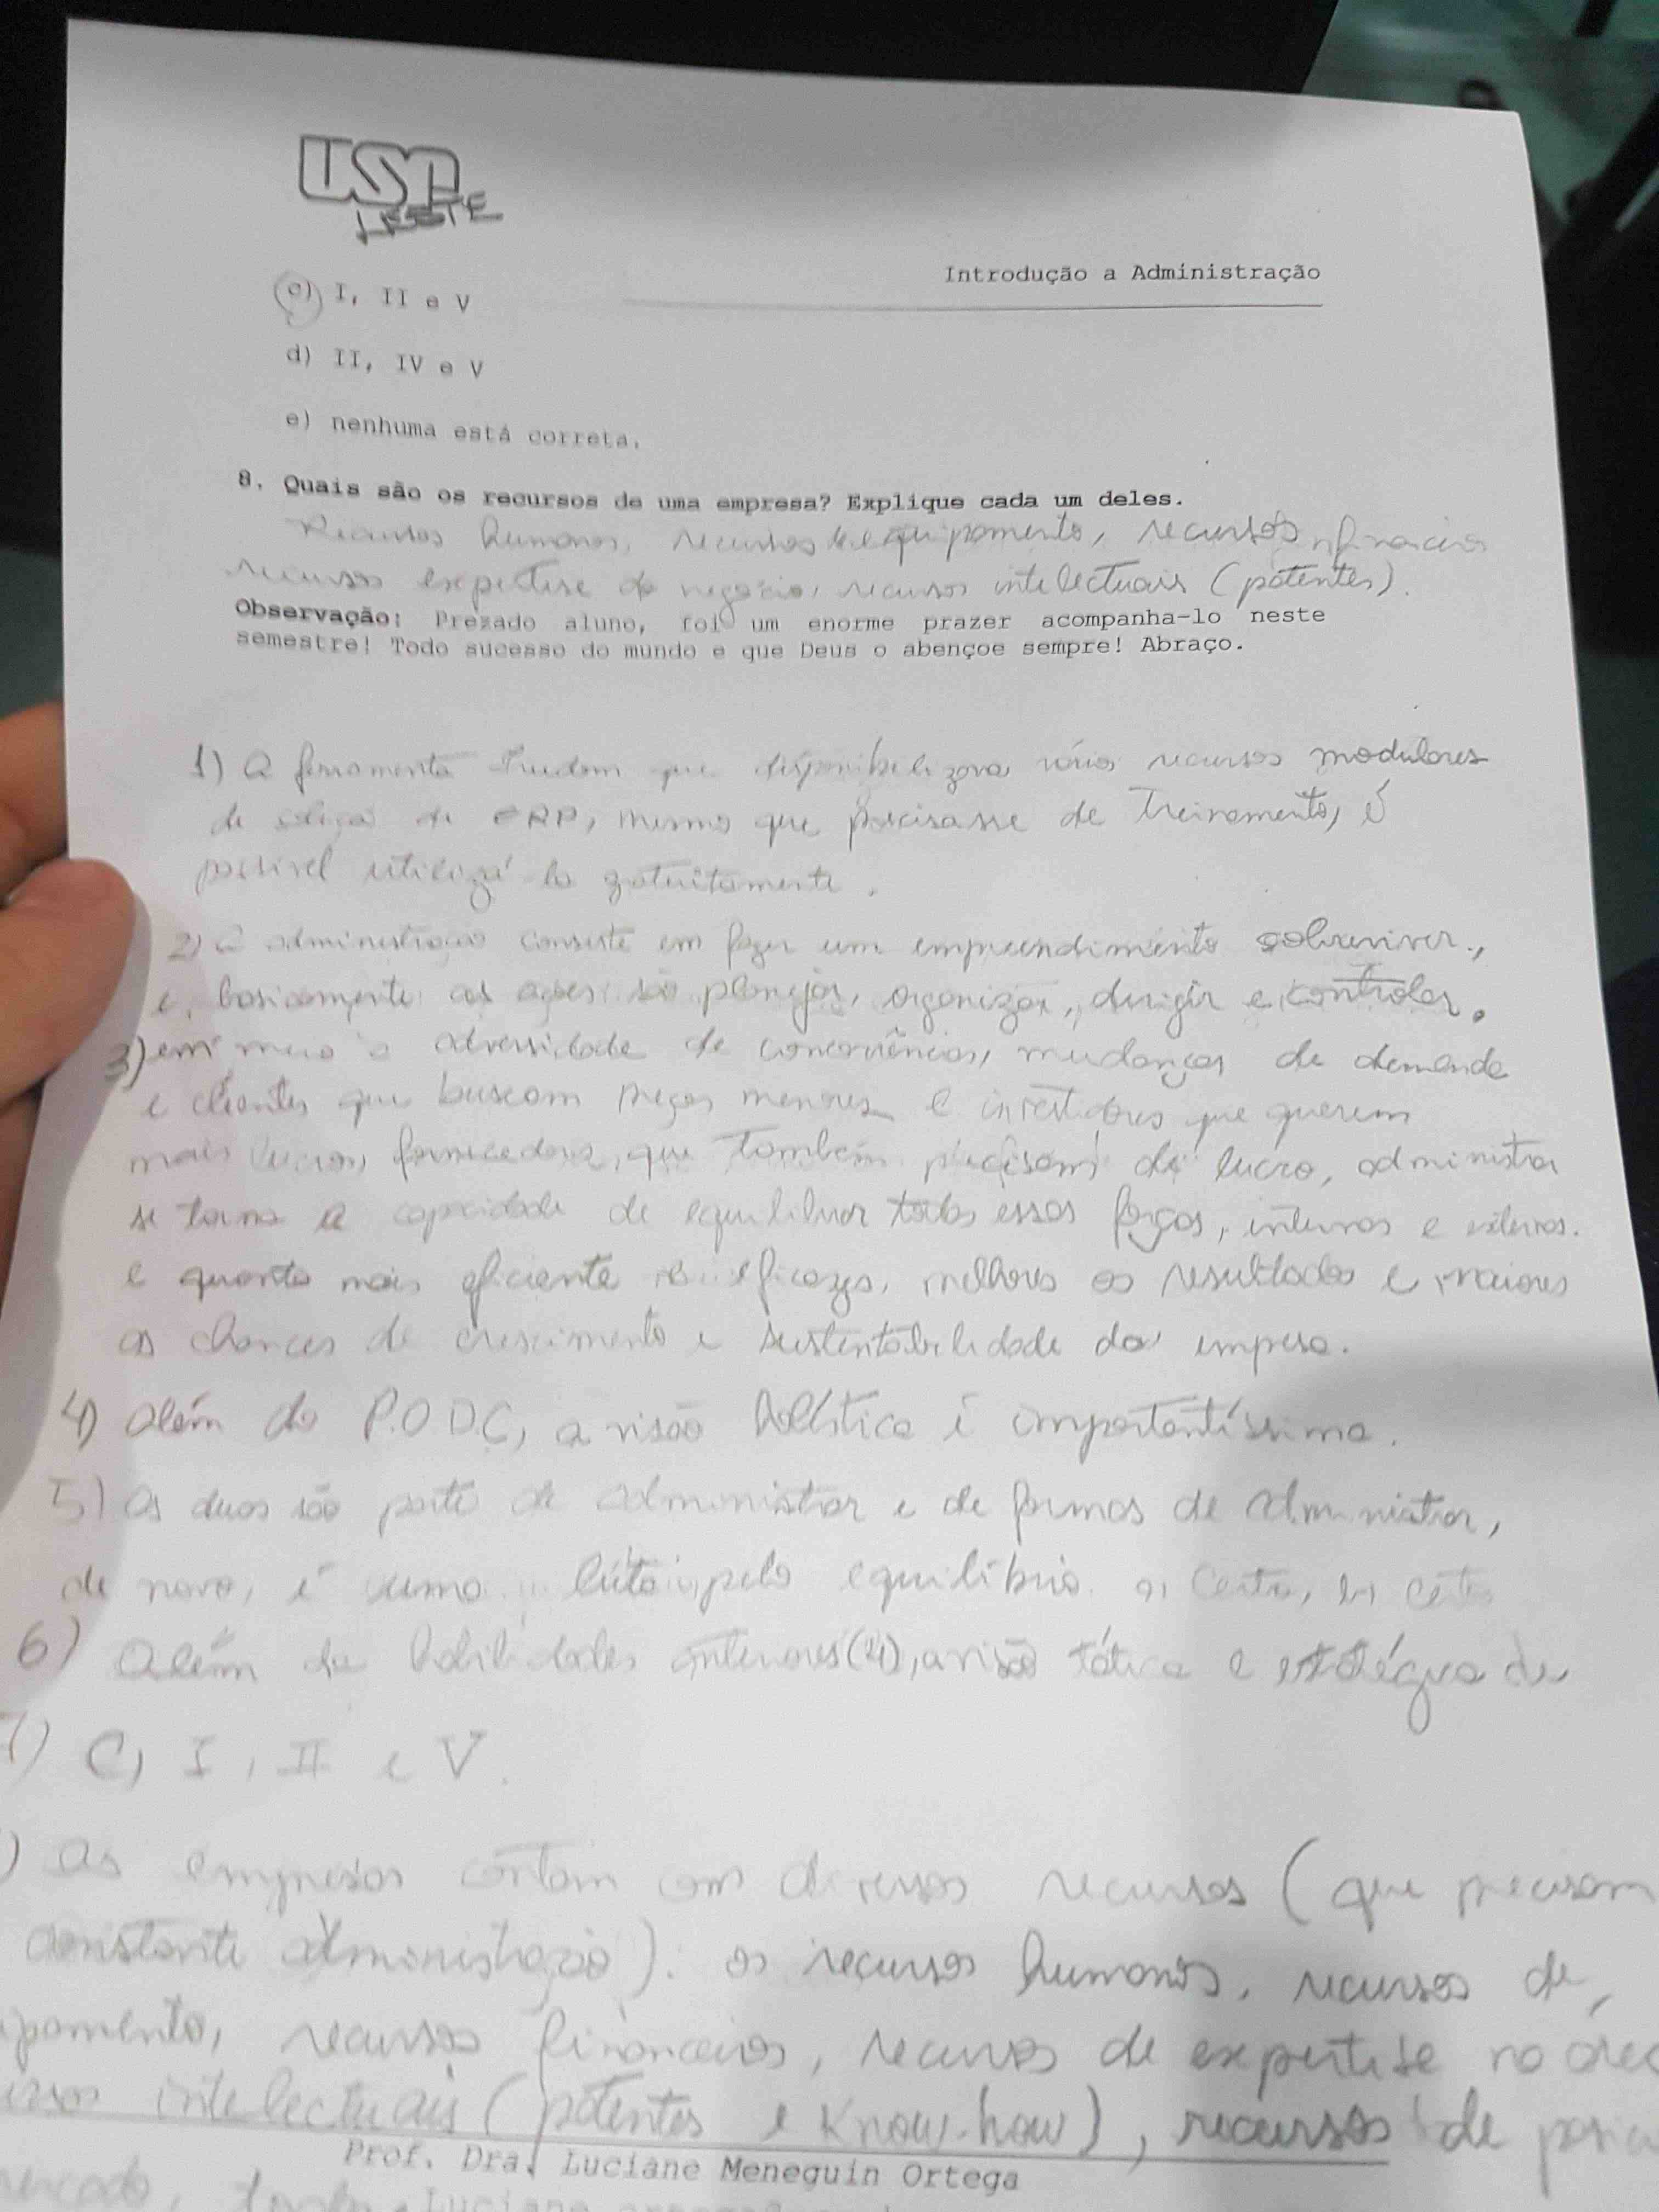 USP
LESTE
Introdução a Administração
c) I, II e V
d) II, IV e V
e) nenhuma está correta.
8. Quais são os recursos de uma empresa? Explique cada um deles.
Recursos humanos, recursos de equipamento, recursos financeiros
recursos expertise do negócio, recursos intelectuais (patentes).
Observação: Prezado aluno, foi um enorme prazer acompanha-lo neste
semestre! Todo sucesso do mundo e que Deus o abençoe sempre! Abraço.
1) A ferramenta que disponibilizava vários recursos modulares
de de ERP, mesmo que precisasse de treinamento, é
possível utilizá-la gratuitamente.
2) A administração consiste em fazer um empreendimento sobreviver,
e, basicamente as ações são planejar, organizar, dirigir e controlar.
3) em meio a adversidade de concorrências, mudanças de demanda
e clientes que buscam preços menores e investidores que querem
mais lucros, fornecedores, que também precisam de lucro, administrar
se torna a capacidade de equilibrar todas essas forças, internas e externas.
e quanto mais eficiente eficazes, melhores os resultados e maiores
as chances de crescimento e sustentabilidade da empresa.
4) Além do P.O.D.C, a visão holística é importantíssima.
5) As duas são parte de administrar e de formas de administrar,
de novo, é uma luta pelo equilíbrio. a) Certo, b) Certo
6) Além de habilidades anteriores (4), a visão tática e de
7) C) I, II e V.
) As empresas contam com diversos recursos (que precisam
constante administração). os recursos humanos, recursos de
ipamento, recursos financeiros, recursos de expertise na
intelectuais (patentes e know-how), recursos de
Prof. Dra. Luciane Meneguin Ortega